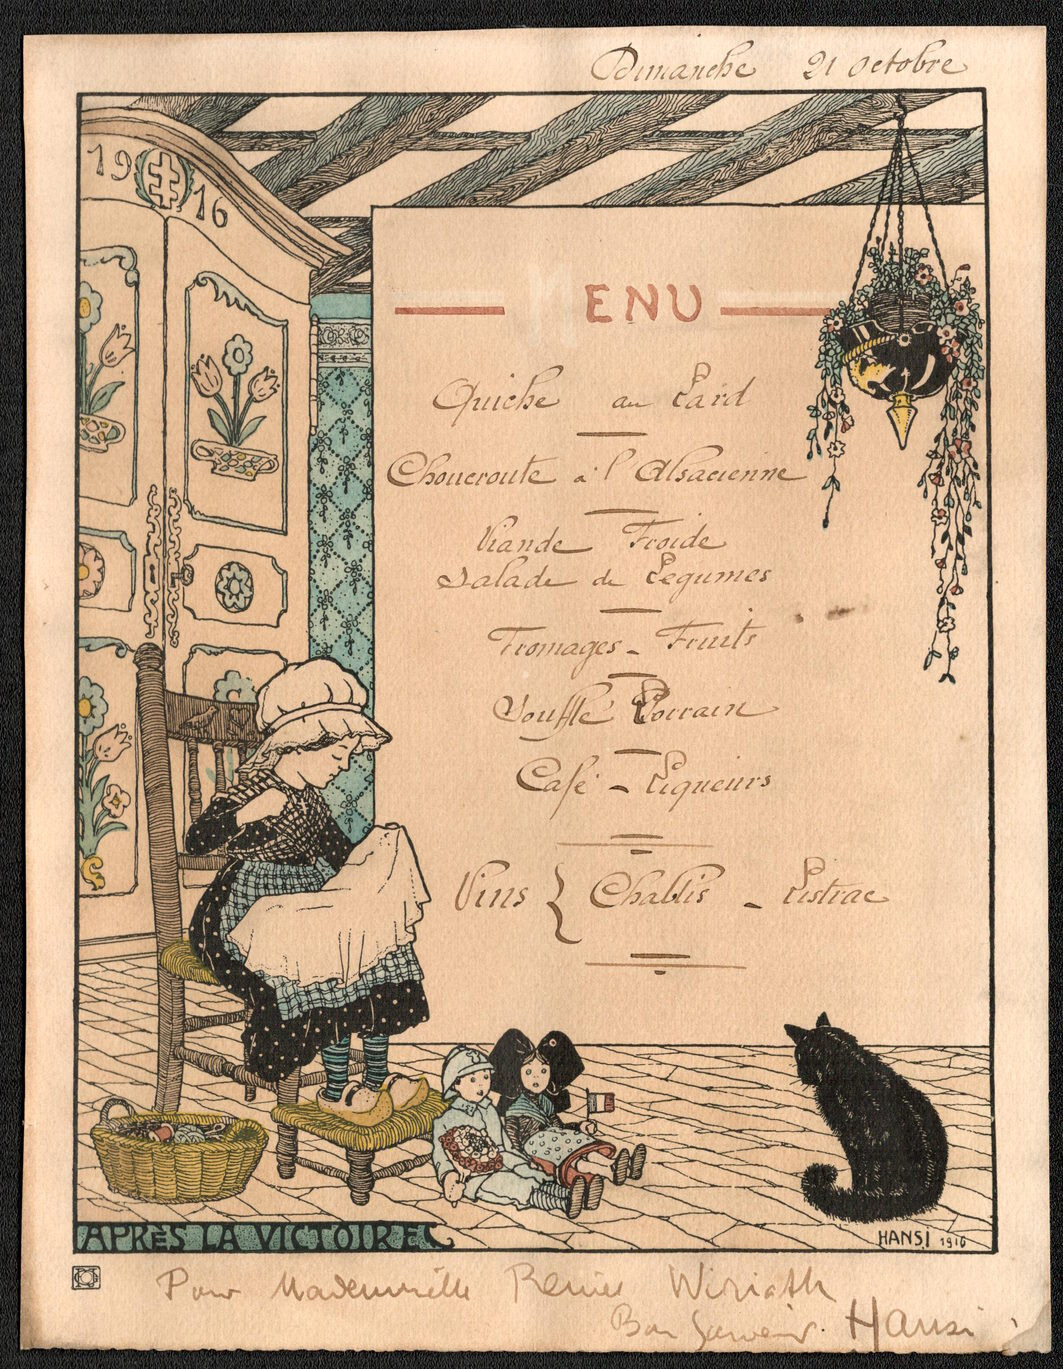 Dimanche 21 Octobre
19 16
MENU
Quiche au Lard
Choucroute à l'Alsacienne
Viande Froide
Salade de Légumes
Fromages - Fruits
Soufflé Lorrain
Café - Liqueurs
Vins { Chablis - Listrac
APRÈS LA VICTOIRE
HANSI 1916
Pour Mademoiselle Renée Wiriath
Bon Souvenir. Hansi